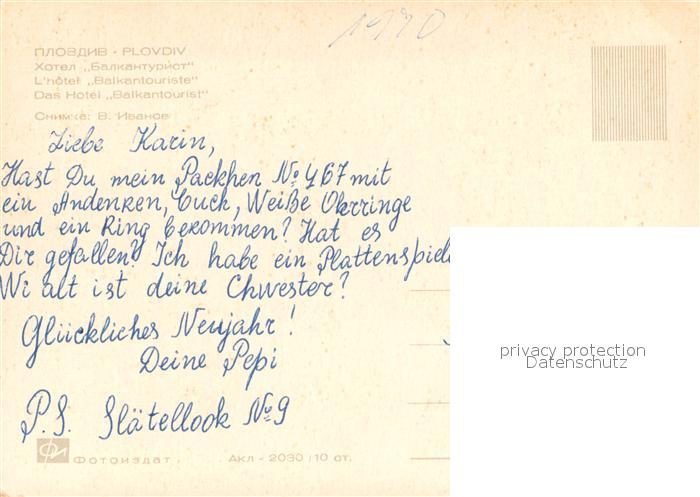 1970
ПЛОВДИВ - PLOVDIV
Хотел „Балкантурист"
L'hôtel „Balkantouriste"
Das Hotel „Balkantourist"
Снимка: В. Иванов
Liebe Karin,
Hast Du mein Packhen № 467 mit
ein Andenken, Cuck, Weiße Okrringe
und ein Ring bekommen? Hat es
Dir gefallen? Ich habe ein Plattenspiel
Wi alt ist deine Chwester?
Glückliches Neujahr!
Deine Pepi
P.S. Slätellook № 9
Фотоиздат. Акл - 2030 / 10 ст.
privacy protection
Datenschutz